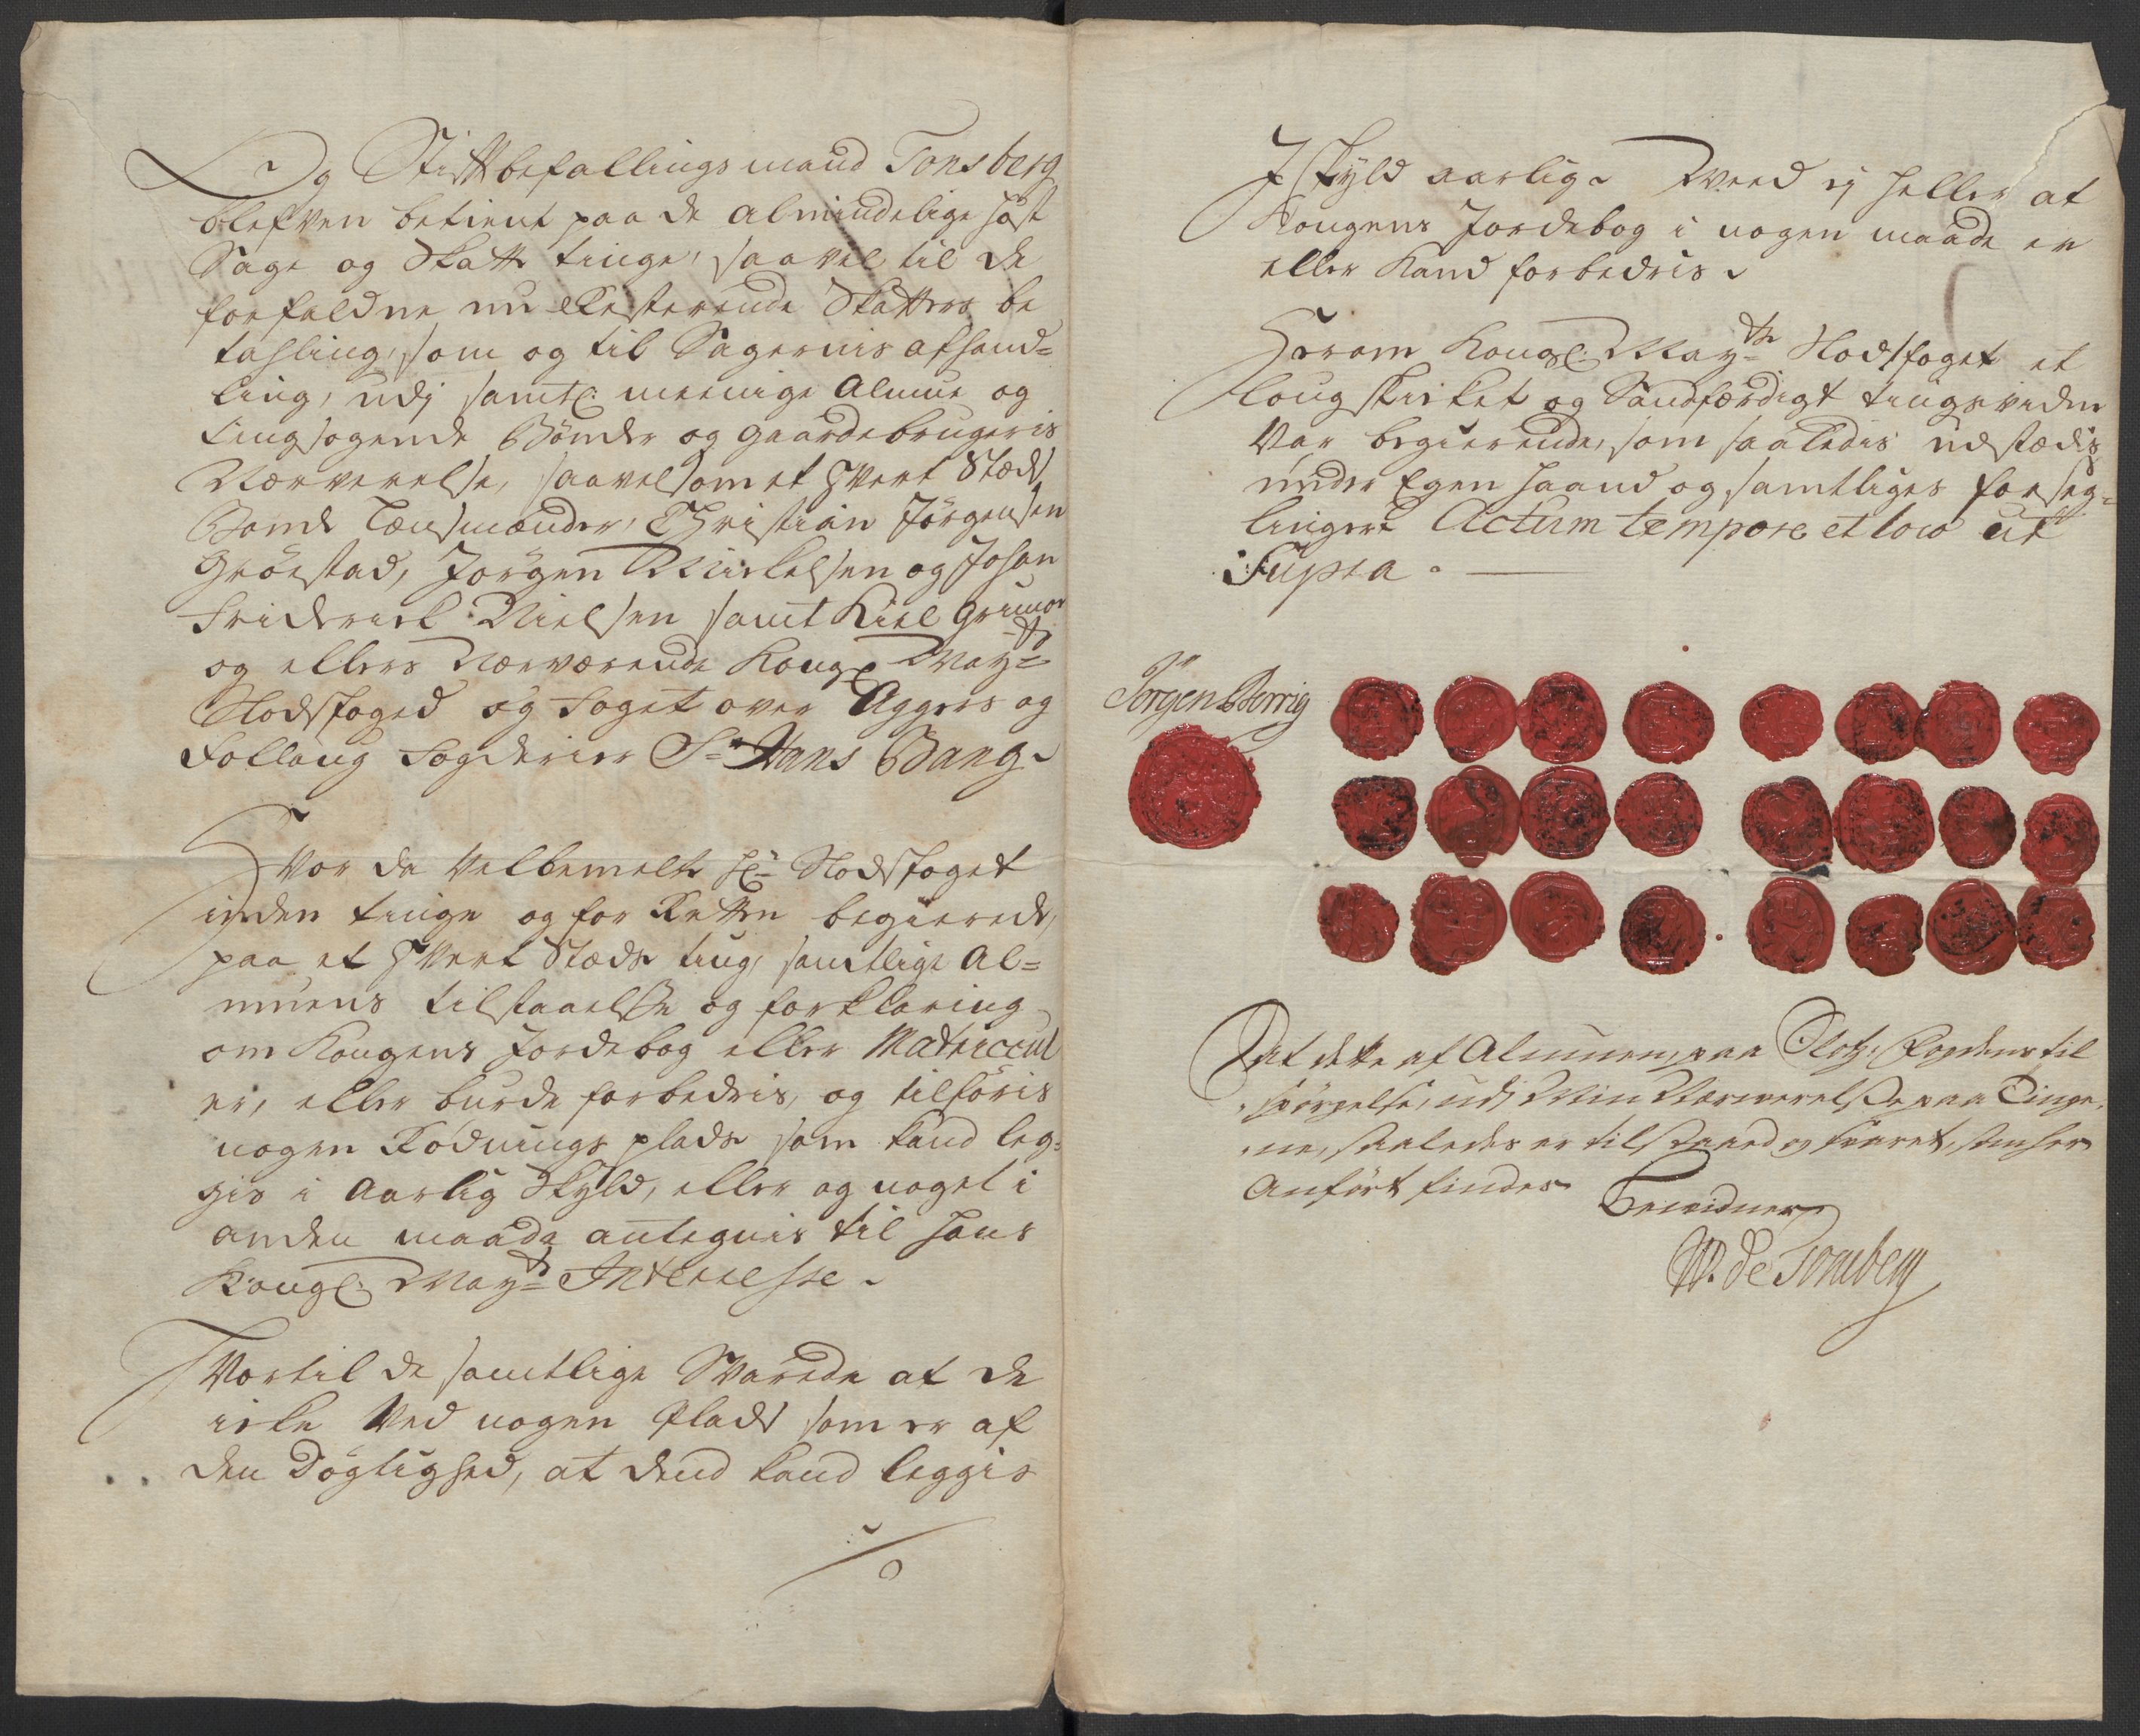 Og Stiftbefallings mand Tonsberg
blefven betient paa de almindelige høst
Sage og Skatte tinge, saavel til de
forfaldne nu Resterende Skatters be
tahling, som og til Sagernis afhand=
ling, udj samtl: meenige Almue og
tingsøgende Bønder og gaardebrugeris
Nærverelse, saavelsom et hvert Stæds
Bonde Lensmænder, Christian Jörgensen
Gröestad, Jörgen Michelsen og Johan
Friderick Nielsen samt Kiel
og ellers Nærværende Kongl: May:ts
Slodsfoged og Foget over Aggers og
Folloug Fogderier Sr Hans Bang.
Hvor da Velbemelte Hr: Slodsfoget
inden tinge og for Retten begierede,
paa et hvert Stæds ting, samtlige Al=
muens tilstaaelse og forklaring
om Kongens Jordebog eller Matricul
er, eller burde forbedris, og tilføris
nogen Rødnings plads som kand leg=
gis i Aarlig Skyld, eller og noget i
anden maade antegnis til hans
Kongl: May:ts Interesse.
Hvortil de samtlige Svarede at de
icke Ved nogen plads som er af
den Dögtighed, at dend kand leggis
I Skyld aarlig. Weed ej heller at
Kongens Jordebog i nogen maade er
eller kand forbedris.
Hvorom Kongl: May:ts Slodsfoget et
lougskicket og Sandfærdigt tingsvidne
Var begierende, som saaledis udstædis
under Egen haand og samtliges forseg=
linger. Actum tempore et loco ut
Supra.
Jörgen Borrig
Dat dette af Almuen, paa Slotz-Fogdens til
spørgelse, udj Min Nærværelse paa Tinge,
ne, saaledes er tilstaaed og svaret, som her
Anført findes
Bevidner
W. de Tonsberg